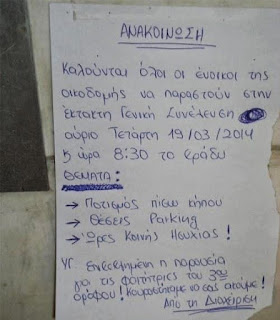 ΑΝΑΚΟΙΝΩΣΗ
Καλούνται όλοι οι ένοικοι της
οικοδομής να παραστούν στην
έκτακτη Γενική Συνέλευση
αύριο Τετάρτη 19/03/2014
& ώρα 8:30 το βράδυ
ΘΕΜΑΤΑ:
→ Ποτισμός πίσω κήπου
→ Θέσεις Parking
→ Ώρες Κοινής Ησυχίας!
ΥΓ. Επιβεβλημένη η παρουσία
για τις φοιτήτριες του 3ου
ορόφου! Κουραστήκαμε να σας ακούμε!
Από τη Διαχείριση